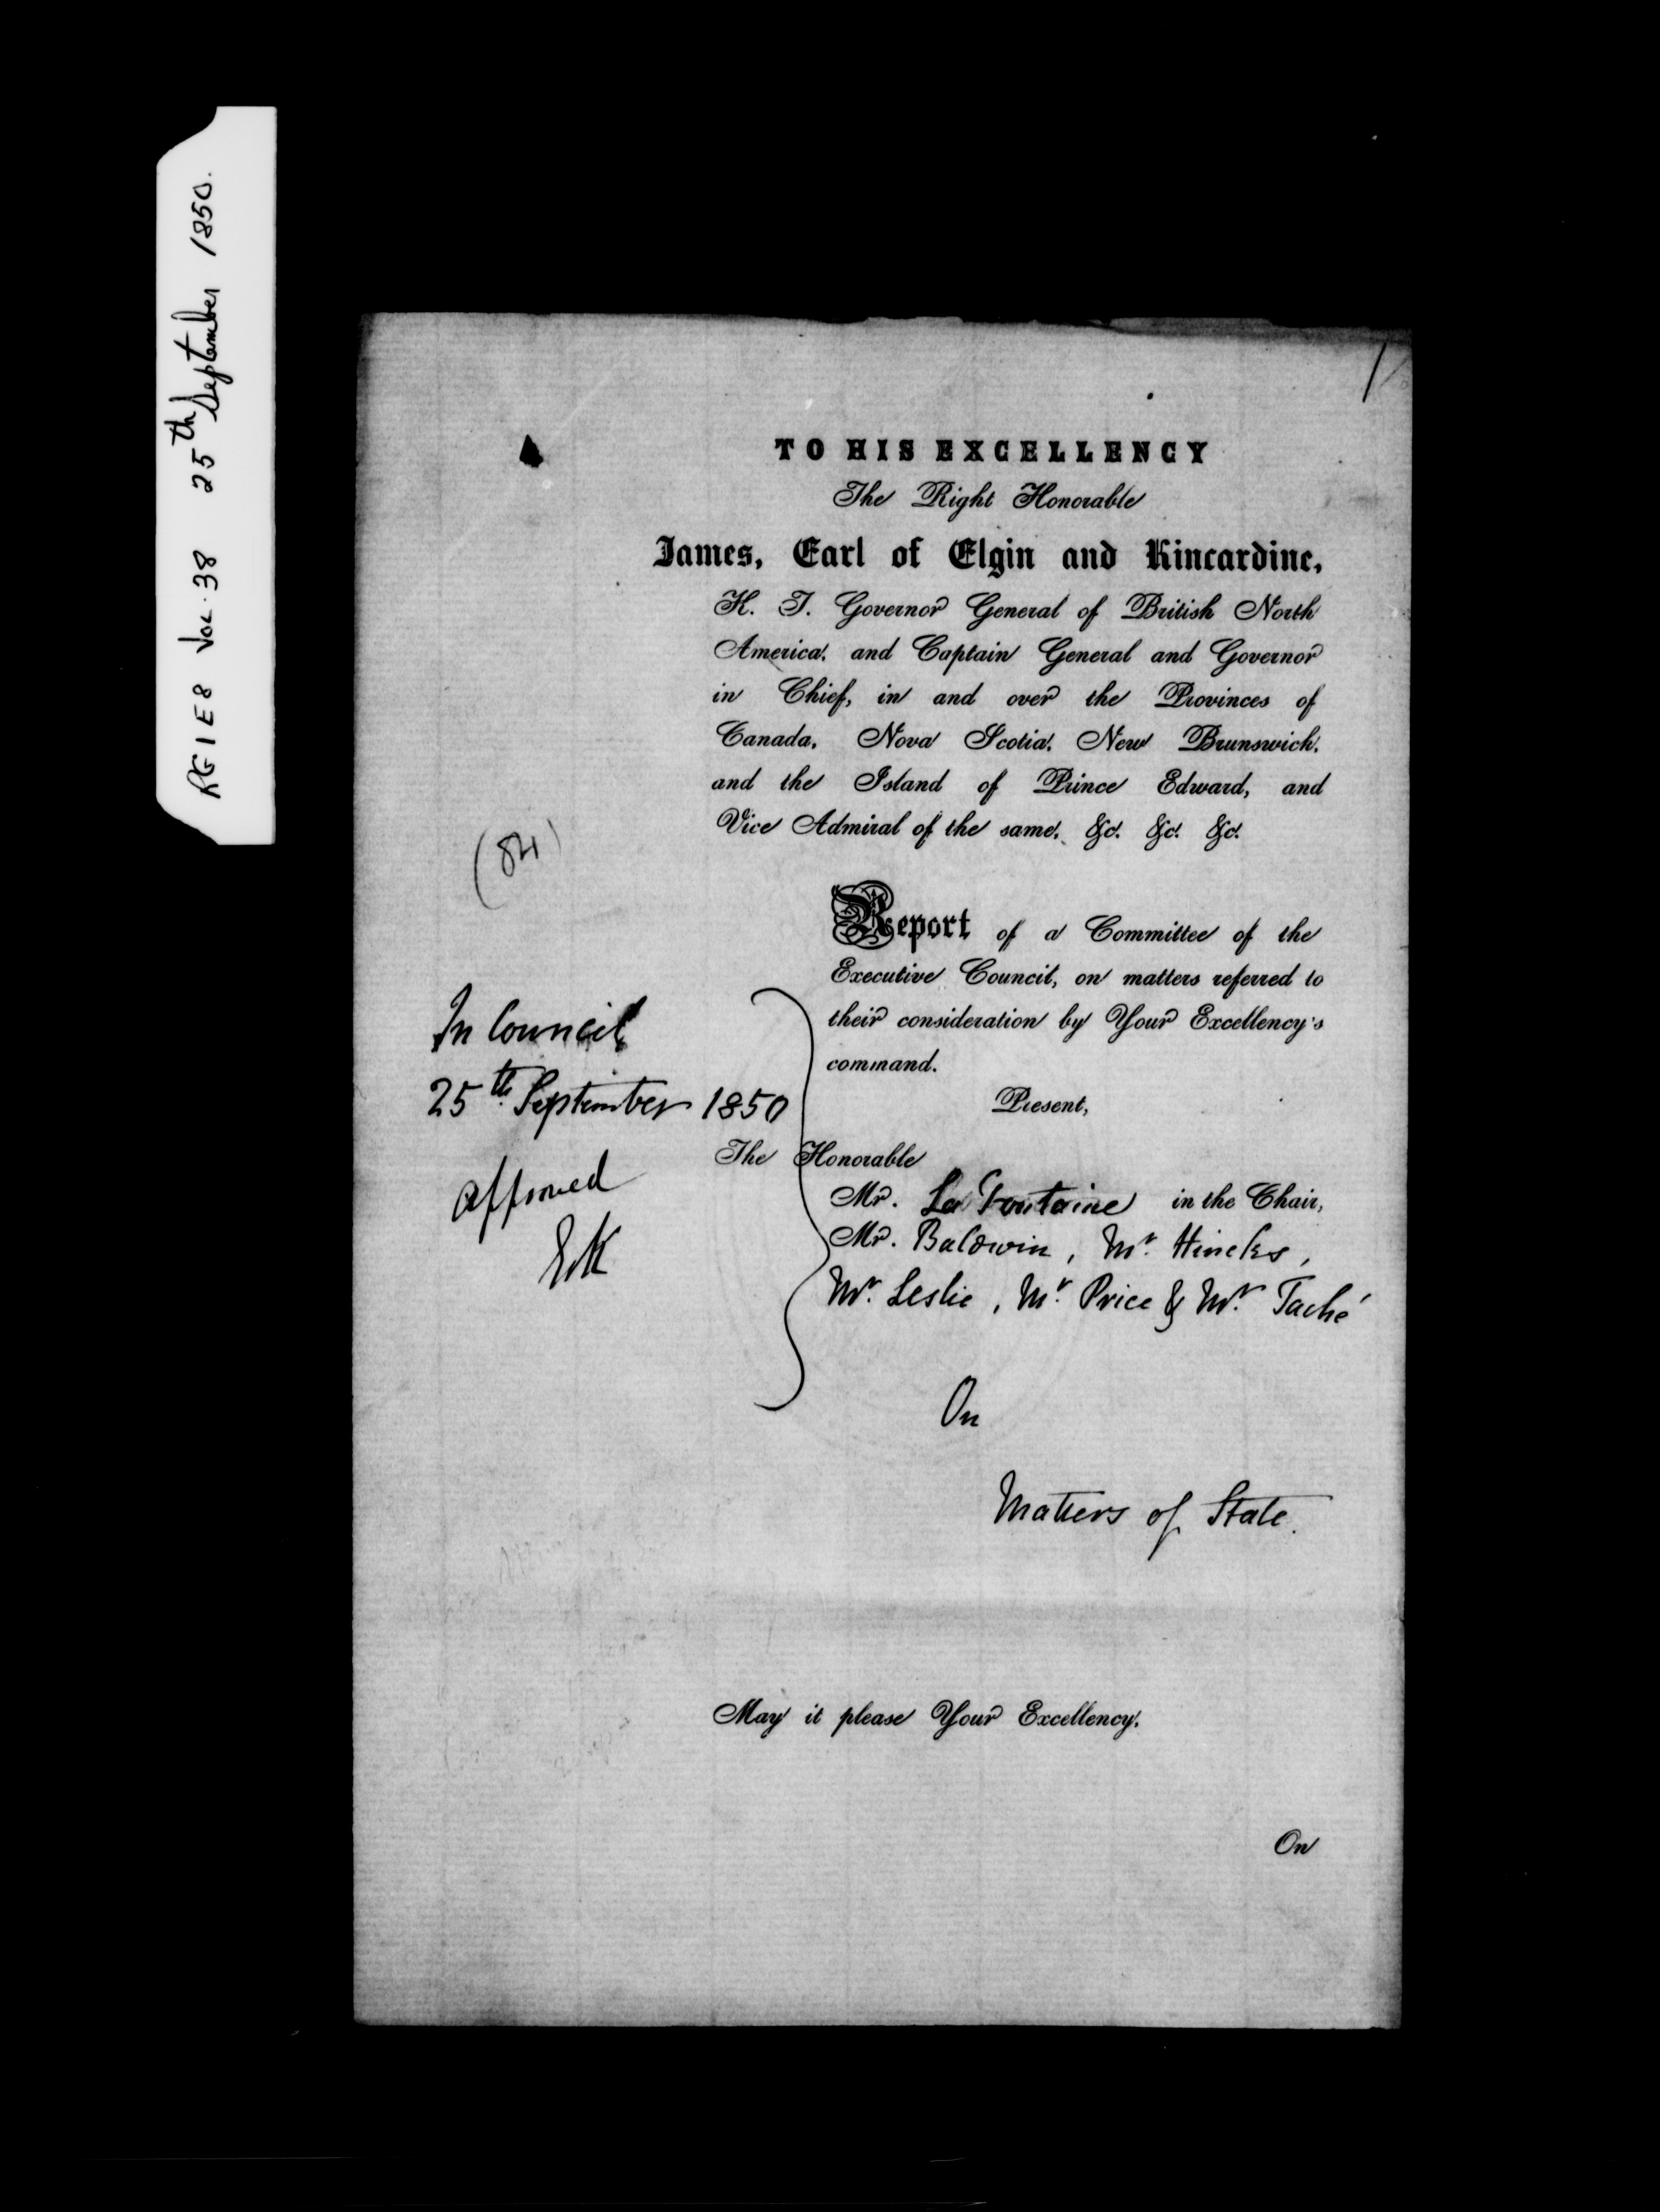 RG 1 E 8 Vol. 38 25th September 1850.
TO HIS EXCELLENCY
The Right Honorable
James, Earl of Elgin and Kincardine,
K. T. Governor General of British North
America, and Captain General and Governor
in Chief, in and over the Provinces of
Canada, Nova Scotia, New Brunswick,
and the Island of Prince Edward, and
Vice Admiral of the same, &c. &c. &c.
(84)
Report of a Committee of the
Executive Council, on matters referred to
their consideration by Your Excellency's
command.
In Council
25th September 1850
approved
E&K
Present,
The Honorable
Mr. La Fontaine in the Chair,
Mr. Baldwin, Mr. Hincks,
Mr. Leslie, Mr. Price & Mr. Taché
On
Matters of State.
May it please Your Excellency.
On